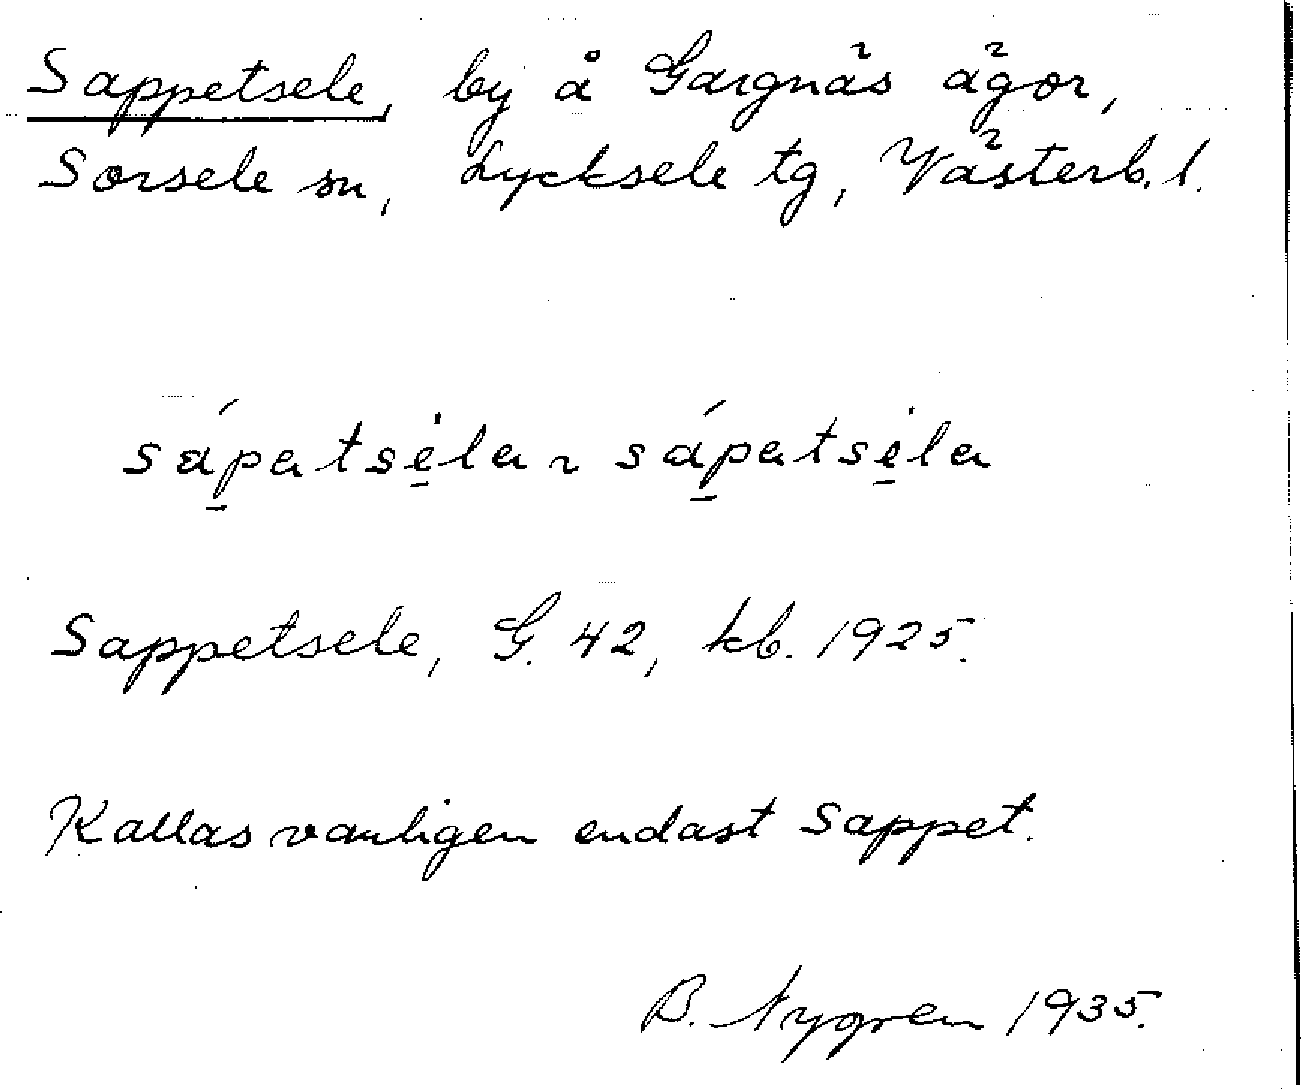 Sappetsele, by å Gargnäs ägor,
Sorsele sn, Lycksele tg, Västerb. l.
sápatséla ~ sápatséla
Sappetsele, G. 42, kb. 1925.
Kallas vanligen endast Sappet.
B. Nygren 1935.